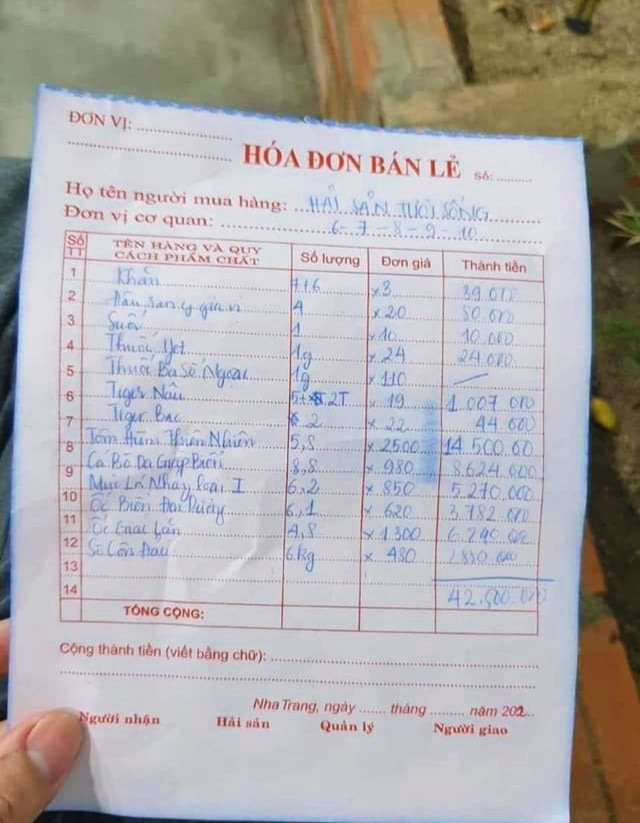 ĐƠN VỊ:
HÓA ĐƠN BÁN LẺ Số:
Họ tên người mua hàng: HẢI SẢN TƯƠI SỐNG
Đơn vị cơ quan: 6-7-8-9-10
Số TT TÊN HÀNG VÀ QUY CÁCH PHẨM CHẤT Số lượng Đơn giá Thành tiền
1 Khăn ×3 39.000
2 4 ×20 80.000
3 Suối 1 ×10 10.000
4 Thuốc 1g ×24 24.000
5 Thuốc Ba Số Ngoại 1g ×110
6 Tiger Nâu 2T ×19 1.007.000
7 Tiger Bạc 2 ×22 44.000
8 Tôm Hùm Thiên Nhiên 5,8 ×2500 14.500.00
9 Cá Bò Da Giáp Biển 8,8 ×980 8.624.000
10 Mực Lá Nháy Loại I 6,2 ×850 5.270.000
11 Ốc Biển 6,1 ×620 3.782.000
12 Ốc Lớn 4,8 ×1300
13 Sò Côn Đảo 6kg ×480
14 42.500.000
TỔNG CỘNG:
Cộng thành tiền (viết bằng chữ):
Nha Trang, ngày ....... tháng ......... năm 202...
Người nhận Hải sản Quản lý Người giao